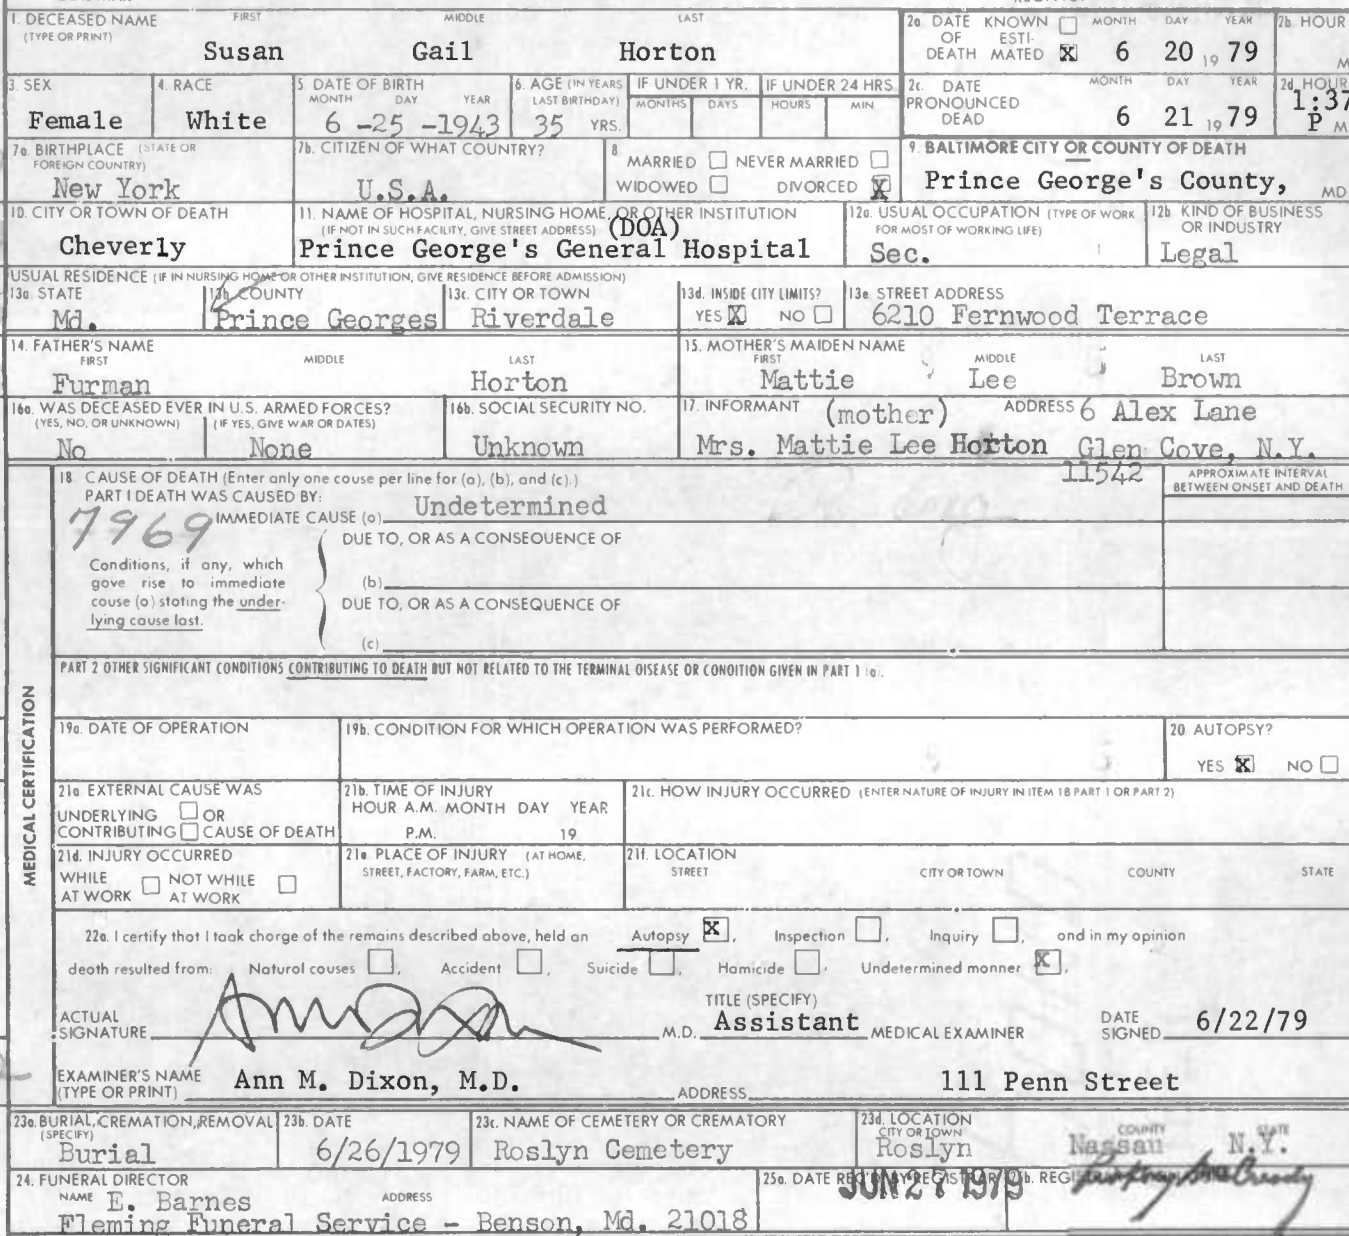 1. DECEASED NAME FIRST MIDDLE LAST
(TYPE OR PRINT)
Susan Gail Horton
2a. DATE KNOWN ☐ MONTH DAY YEAR 2b. HOUR
OF ESTI-
DEATH MATED ☒ 6 20 19 79 M
3. SEX 4. RACE 5. DATE OF BIRTH 6. AGE (IN YEARS IF UNDER 1 YR. IF UNDER 24 HRS
MONTH DAY YEAR LAST BIRTHDAY) MONTHS DAYS HOURS MIN
Female White 6 -25 -1943 35 YRS.
2c. DATE MONTH DAY YEAR 2d. HOUR
PRONOUNCED
DEAD 6 21 19 79 1:37
P M
7a. BIRTHPLACE (STATE OR
FOREIGN COUNTRY)
New York
7b. CITIZEN OF WHAT COUNTRY?
U.S.A.
8 MARRIED ☐ NEVER MARRIED ☐
WIDOWED ☐ DIVORCED ☒
9. BALTIMORE CITY OR COUNTY OF DEATH
Prince George's County, MD.
10. CITY OR TOWN OF DEATH
Cheverly
11. NAME OF HOSPITAL, NURSING HOME, OR OTHER INSTITUTION
(IF NOT IN SUCH FACILITY, GIVE STREET ADDRESS) (DOA)
Prince George's General Hospital
12a. USUAL OCCUPATION (TYPE OF WORK
FOR MOST OF WORKING LIFE)
Sec.
12b. KIND OF BUSINESS
OR INDUSTRY
Legal
USUAL RESIDENCE (IF IN NURSING HOME OR OTHER INSTITUTION, GIVE RESIDENCE BEFORE ADMISSION)
13a STATE 13b. COUNTY 13c. CITY OR TOWN 13d. INSIDE CITY LIMITS? 13e STREET ADDRESS
Md. Prince Georges Riverdale YES ☒ NO ☐ 6210 Fernwood Terrace
14. FATHER'S NAME
FIRST MIDDLE LAST
Furman Horton
15. MOTHER'S MAIDEN NAME
FIRST MIDDLE LAST
Mattie Lee Brown
16a. WAS DECEASED EVER IN U.S. ARMED FORCES?
(YES, NO, OR UNKNOWN) (IF YES, GIVE WAR OR DATES)
No None
16b. SOCIAL SECURITY NO.
Unknown
17. INFORMANT (mother) ADDRESS 6 Alex Lane
Mrs. Mattie Lee Horton Glen Cove, N.Y.
11542
MEDICAL CERTIFICATION
18 CAUSE OF DEATH (Enter only one cause per line for (a), (b), and (c).)
APPROXIMATE INTERVAL
BETWEEN ONSET AND DEATH
PART I DEATH WAS CAUSED BY:
7969 IMMEDIATE CAUSE (a) Undetermined
DUE TO, OR AS A CONSEQUENCE OF
Conditions, if any, which
gave rise to immediate
cause (a) stating the under-
lying cause last.
(b)
DUE TO, OR AS A CONSEQUENCE OF
(c)
PART 2 OTHER SIGNIFICANT CONDITIONS CONTRIBUTING TO DEATH BUT NOT RELATED TO THE TERMINAL DISEASE OR CONDITION GIVEN IN PART 1 (a).
19a. DATE OF OPERATION 19b. CONDITION FOR WHICH OPERATION WAS PERFORMED? 20 AUTOPSY?
YES ☒ NO ☐
21a EXTERNAL CAUSE WAS
UNDERLYING ☐ OR
CONTRIBUTING ☐ CAUSE OF DEATH
21b. TIME OF INJURY
HOUR A.M. MONTH DAY YEAR
P.M. 19
21c. HOW INJURY OCCURRED (ENTER NATURE OF INJURY IN ITEM 18 PART 1 OR PART 2)
21d. INJURY OCCURRED
WHILE ☐ NOT WHILE ☐
AT WORK AT WORK
21e PLACE OF INJURY (AT HOME,
STREET, FACTORY, FARM, ETC.)
21f. LOCATION
STREET CITY OR TOWN COUNTY STATE
22a. I certify that I took charge of the remains described above, held an Autopsy ☒, Inspection ☐, Inquiry ☐, and in my opinion
death resulted from: Natural causes ☐, Accident ☐, Suicide ☐, Homicide ☐, Undetermined manner ☒,
ACTUAL
SIGNATURE M.D.
TITLE (SPECIFY)
Assistant MEDICAL EXAMINER
DATE
SIGNED 6/22/79
EXAMINER'S NAME
(TYPE OR PRINT) Ann M. Dixon, M.D. ADDRESS 111 Penn Street
23a. BURIAL, CREMATION, REMOVAL 23b. DATE 23c. NAME OF CEMETERY OR CREMATORY 23d. LOCATION
(SPECIFY) CITY OR TOWN COUNTY STATE
Burial 6/26/1979 Roslyn Cemetery Roslyn Nassau N.Y.
24. FUNERAL DIRECTOR
NAME E. Barnes ADDRESS
Fleming Funeral Service - Benson, Md. 21018
25a. DATE REC'D BY REGISTRAR 25b. REGI
JUN 27 1979